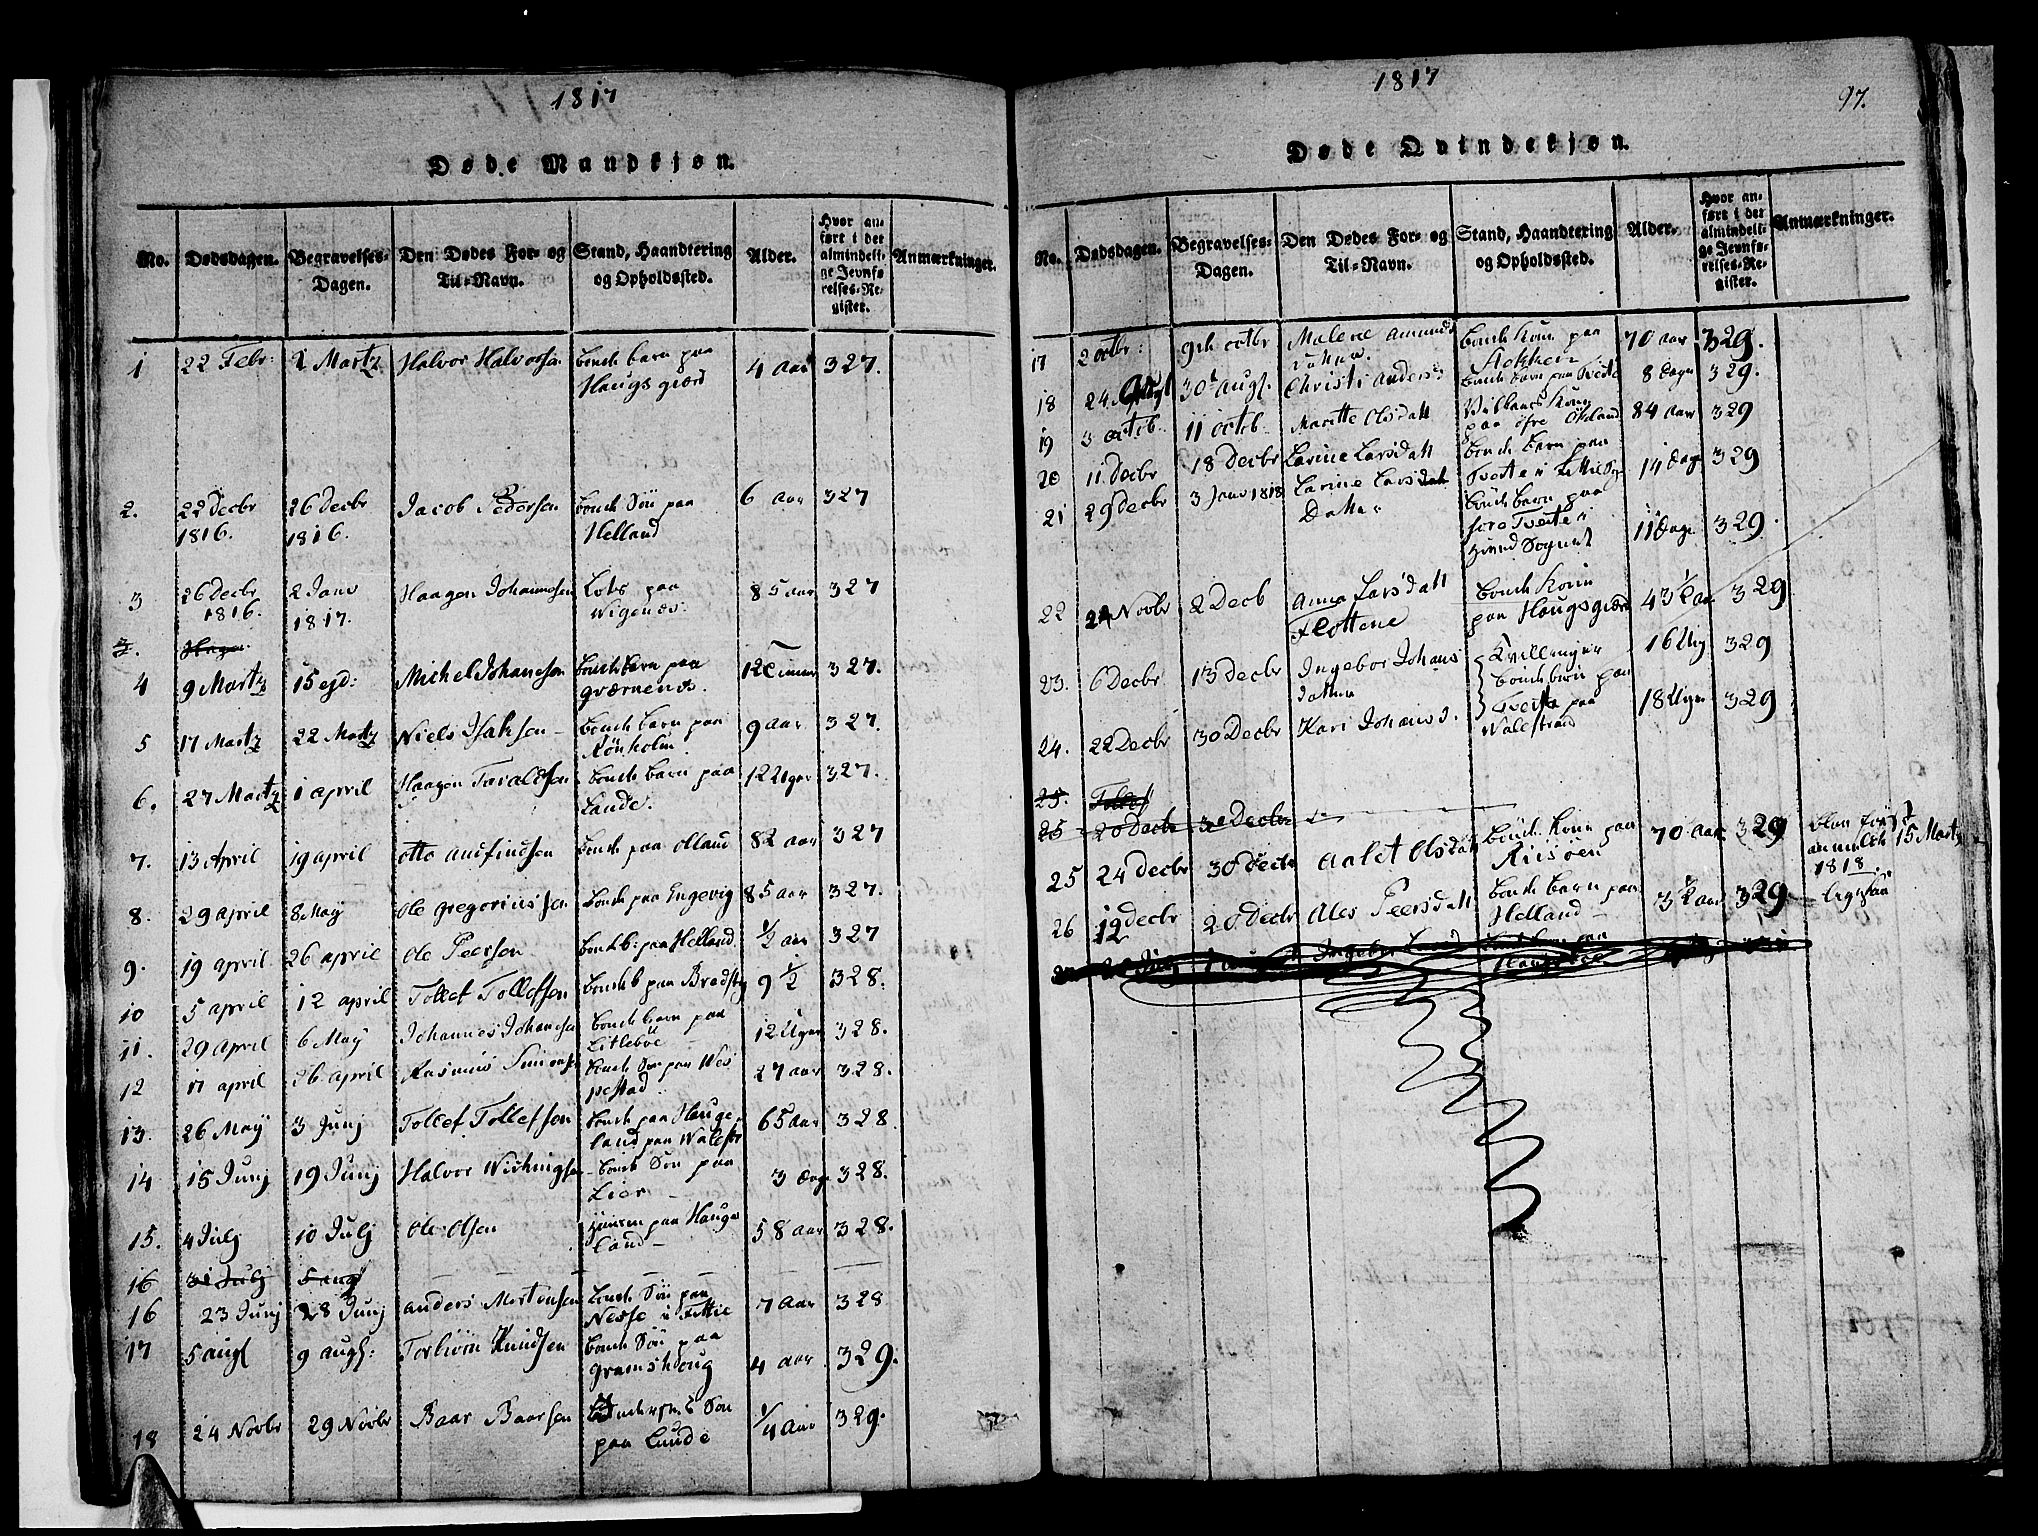 1817
Døde Mandkjøn.
No. Dødsdagen. Begravelses-Dagen. Den Dødes For- og Til-Navn. Stand, Haandtering og Opholdssted. Alder. Hvor anført i det almindelige Jevnførelses-Register. Anmærkninger.
1 22 Febr: 2 Martz Halvor Halvorsen bonde barn paa Haugs giærd 4 aar 327.
2. 22 Decbr 1816. 26 Decbr 1816. Jacob Pedersen bonde Søn paa Helland 6 aar 327
3 26 Decbr 1816. 2 Janv 1817. Haagen Johannesen Lots paa Wigenes. 85 aar 327
4 9 Martz 15 ejd: Michel Johanesen bonde barn paa 12 Timer 327.
5 17 Martz 22 Martz Niels Isaksen bonde barn paa Rønholm 9 aar 327.
6. 27 Martz 1 april Haagen Taraldsen bonde barn paa Lunde. 12 Uger 327.
7. 13 April 19 april Otto Audfindsen bonde paa Olland 82 aar 327
8. 29 april 8 May Ole Gregoriussen bonde paa Engevig 85 aar 327.
9. 19 april 26 april Ole Peersen bonde b: paa Helland ½ aar 327
10 5 april 12 april Tollef Tollefsen bonde b paa 9 ½ 328.
11. 29 april 6 May Johannes Johanesen bonde barn paa Litleböe 12 Uger 328.
12 17 april 26 april Rasmus Simonsen bonde Søn paa Wespestad 27 aar 328.
13. 26 May 3 Junj Tollef Tollefsen bonde paa Haugeland paa 65 aar 328
14 15 Junj 19 Junj Halvor bonde Søn paa Lier 3 dage 328.
15. 4 Julj 10 Julj Ole Olsen paa Haugeland 58 aar 328.
16 31 Julj 5 aug
16 23 Junj 28 Junj anders Mortensen bonde Søn paa Nesse i 7 aar 328
17 5 augl 9 augs: Torbiörn Knudsen bonde Søn paa Gramshoug 4 aar 329.
18 24 Novbr 29 Novbr Baar Baarsen Søn paa Lunde ¼ aar 329.
1817
97.
Døde Qvindekjøn.
No. Dødsdagen. Begravelses-Dagen. Den Dødes For- og Til-Navn. Stand, Haandtering og Opholdssted. Alder. Hvor anført i det almindelige Jevnførelses-Register. Anmærkninger.
17 2 octbr: 9de octbr Malene Amunds datter. bonde Kone paa Stokken 70 aar 329.
18 24 Augl 30 augl. Christi Anders bonde barn paa Tveite 8 dage 329.
19 3 octob. 11 octob. Marette Olsdatt Kone paa øfre Økland 84 aar 329
20 11 Decbr 18 Decbr Larine Larsdatt bonde barn paa Tveite i 14 dage 329
21 29 Decbr 3 Janv 1818 Larine Larsdatter bonde barn paa Tveite i Sognet 11 dage 329.
22 24 Novbr 2 Decb Anna Larsdatt Flottene bonde Kone paa Haugsgiærd 43 ½ aar 329
23. 6 Decbr 13 Decbr Ingebor Johans datter Tvillinger bonde børn paa Tveita paa Walestrand 16 Uger 329
24. 22 Decbr 30 Decbr Kari Johans d. 18 Uger 329
25.
25 20 Decbr 30 Decbr
25 24 decbr 30 decbr Aalet Olsdatt bonde Kone paa Risøen 70 aar 329 blev først anmeldt 15 Martz 1818
26 12 decbr 20 Decbr Ales Peersdatt bonde barn paa Helland 3 ½ aar 329 ligesaa